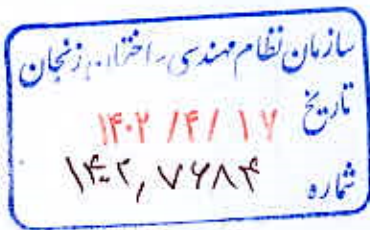 سازمان نظام مهندسی ساختمان زنجان
تاریخ ۱۴۰۲/۴/۱۷
شماره ۱۴۰۲,۷۶۸۴